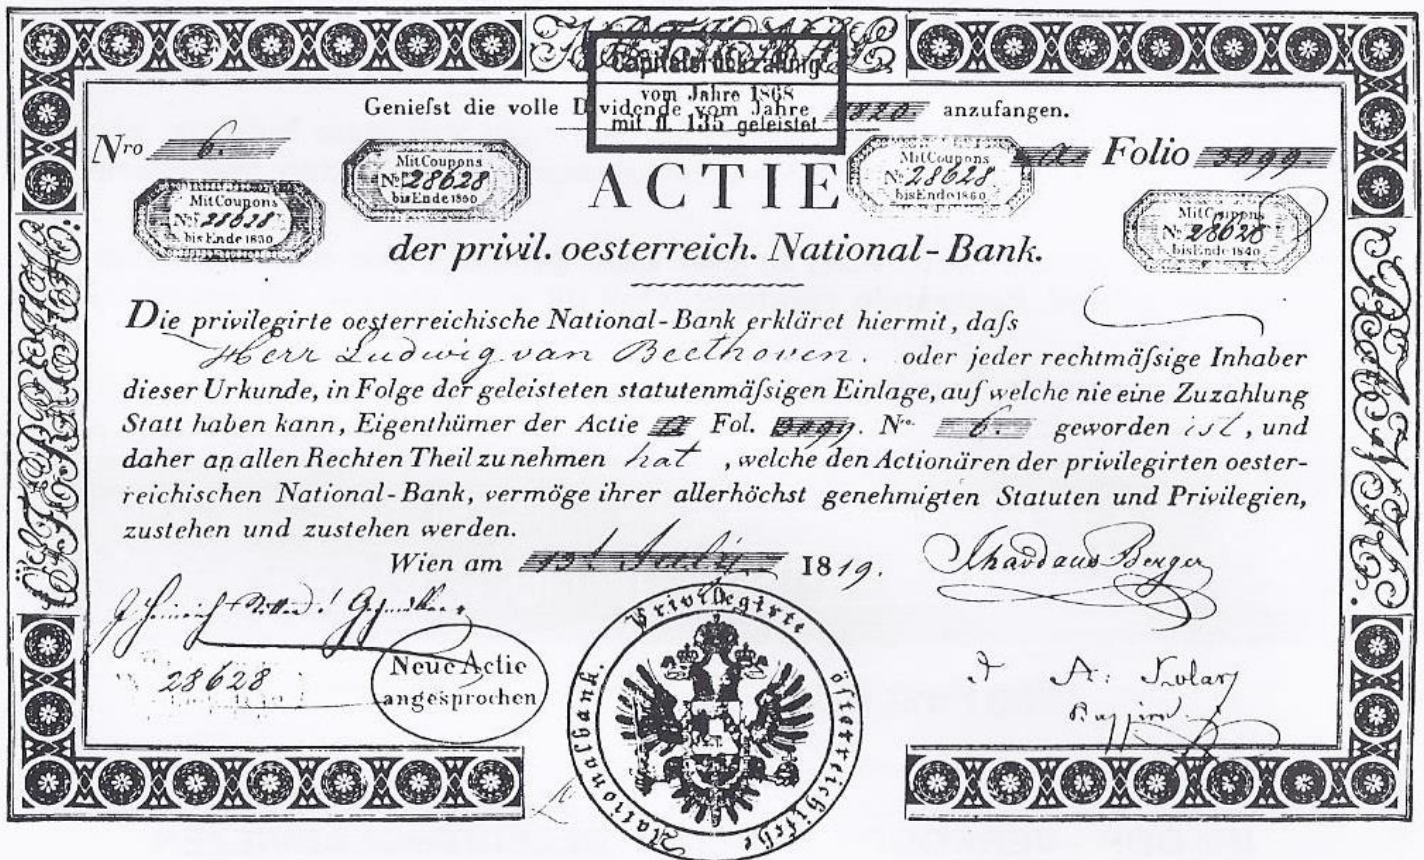 Capitalsrückzahlung
vom Jahre 1868
mit fl. 135 geleistet
Geniefst die volle Dividende vom Jahre 1820 anzufangen.
Nro 6.
a Folio 3099.
Mit Coupons
No 28628
bis Ende 1830
Mit Coupons
No 28628
bis Ende 1850
Mit Coupons
No 28628
bis Ende 1860
Mit Coupons
No 28628
bis Ende 1840
ACTIE
der privil. oesterreich. National-Bank.
Die privilegirte oesterreichische National-Bank erkläret hiermit, dafs
Herr Ludwig van Beethoven. oder jeder rechtmäfsige Inhaber
dieser Urkunde, in Folge der geleisteten statutenmäfsigen Einlage, auf welche nie eine Zuzahlung
Statt haben kann, Eigenthümer der Actie a Fol. 3099. Nro. 6. geworden ist, und
daher an allen Rechten Theil zu nehmen hat, welche den Actionären der privilegirten oester-
reichischen National-Bank, vermöge ihrer allerhöchst genehmigten Statuten und Privilegien,
zustehen und zustehen werden.
Wien am 13t July 1819.
Thaddaus Berger
28628
Neue Actie
angesprochen
Privilegirte österreichische Nationalbank.